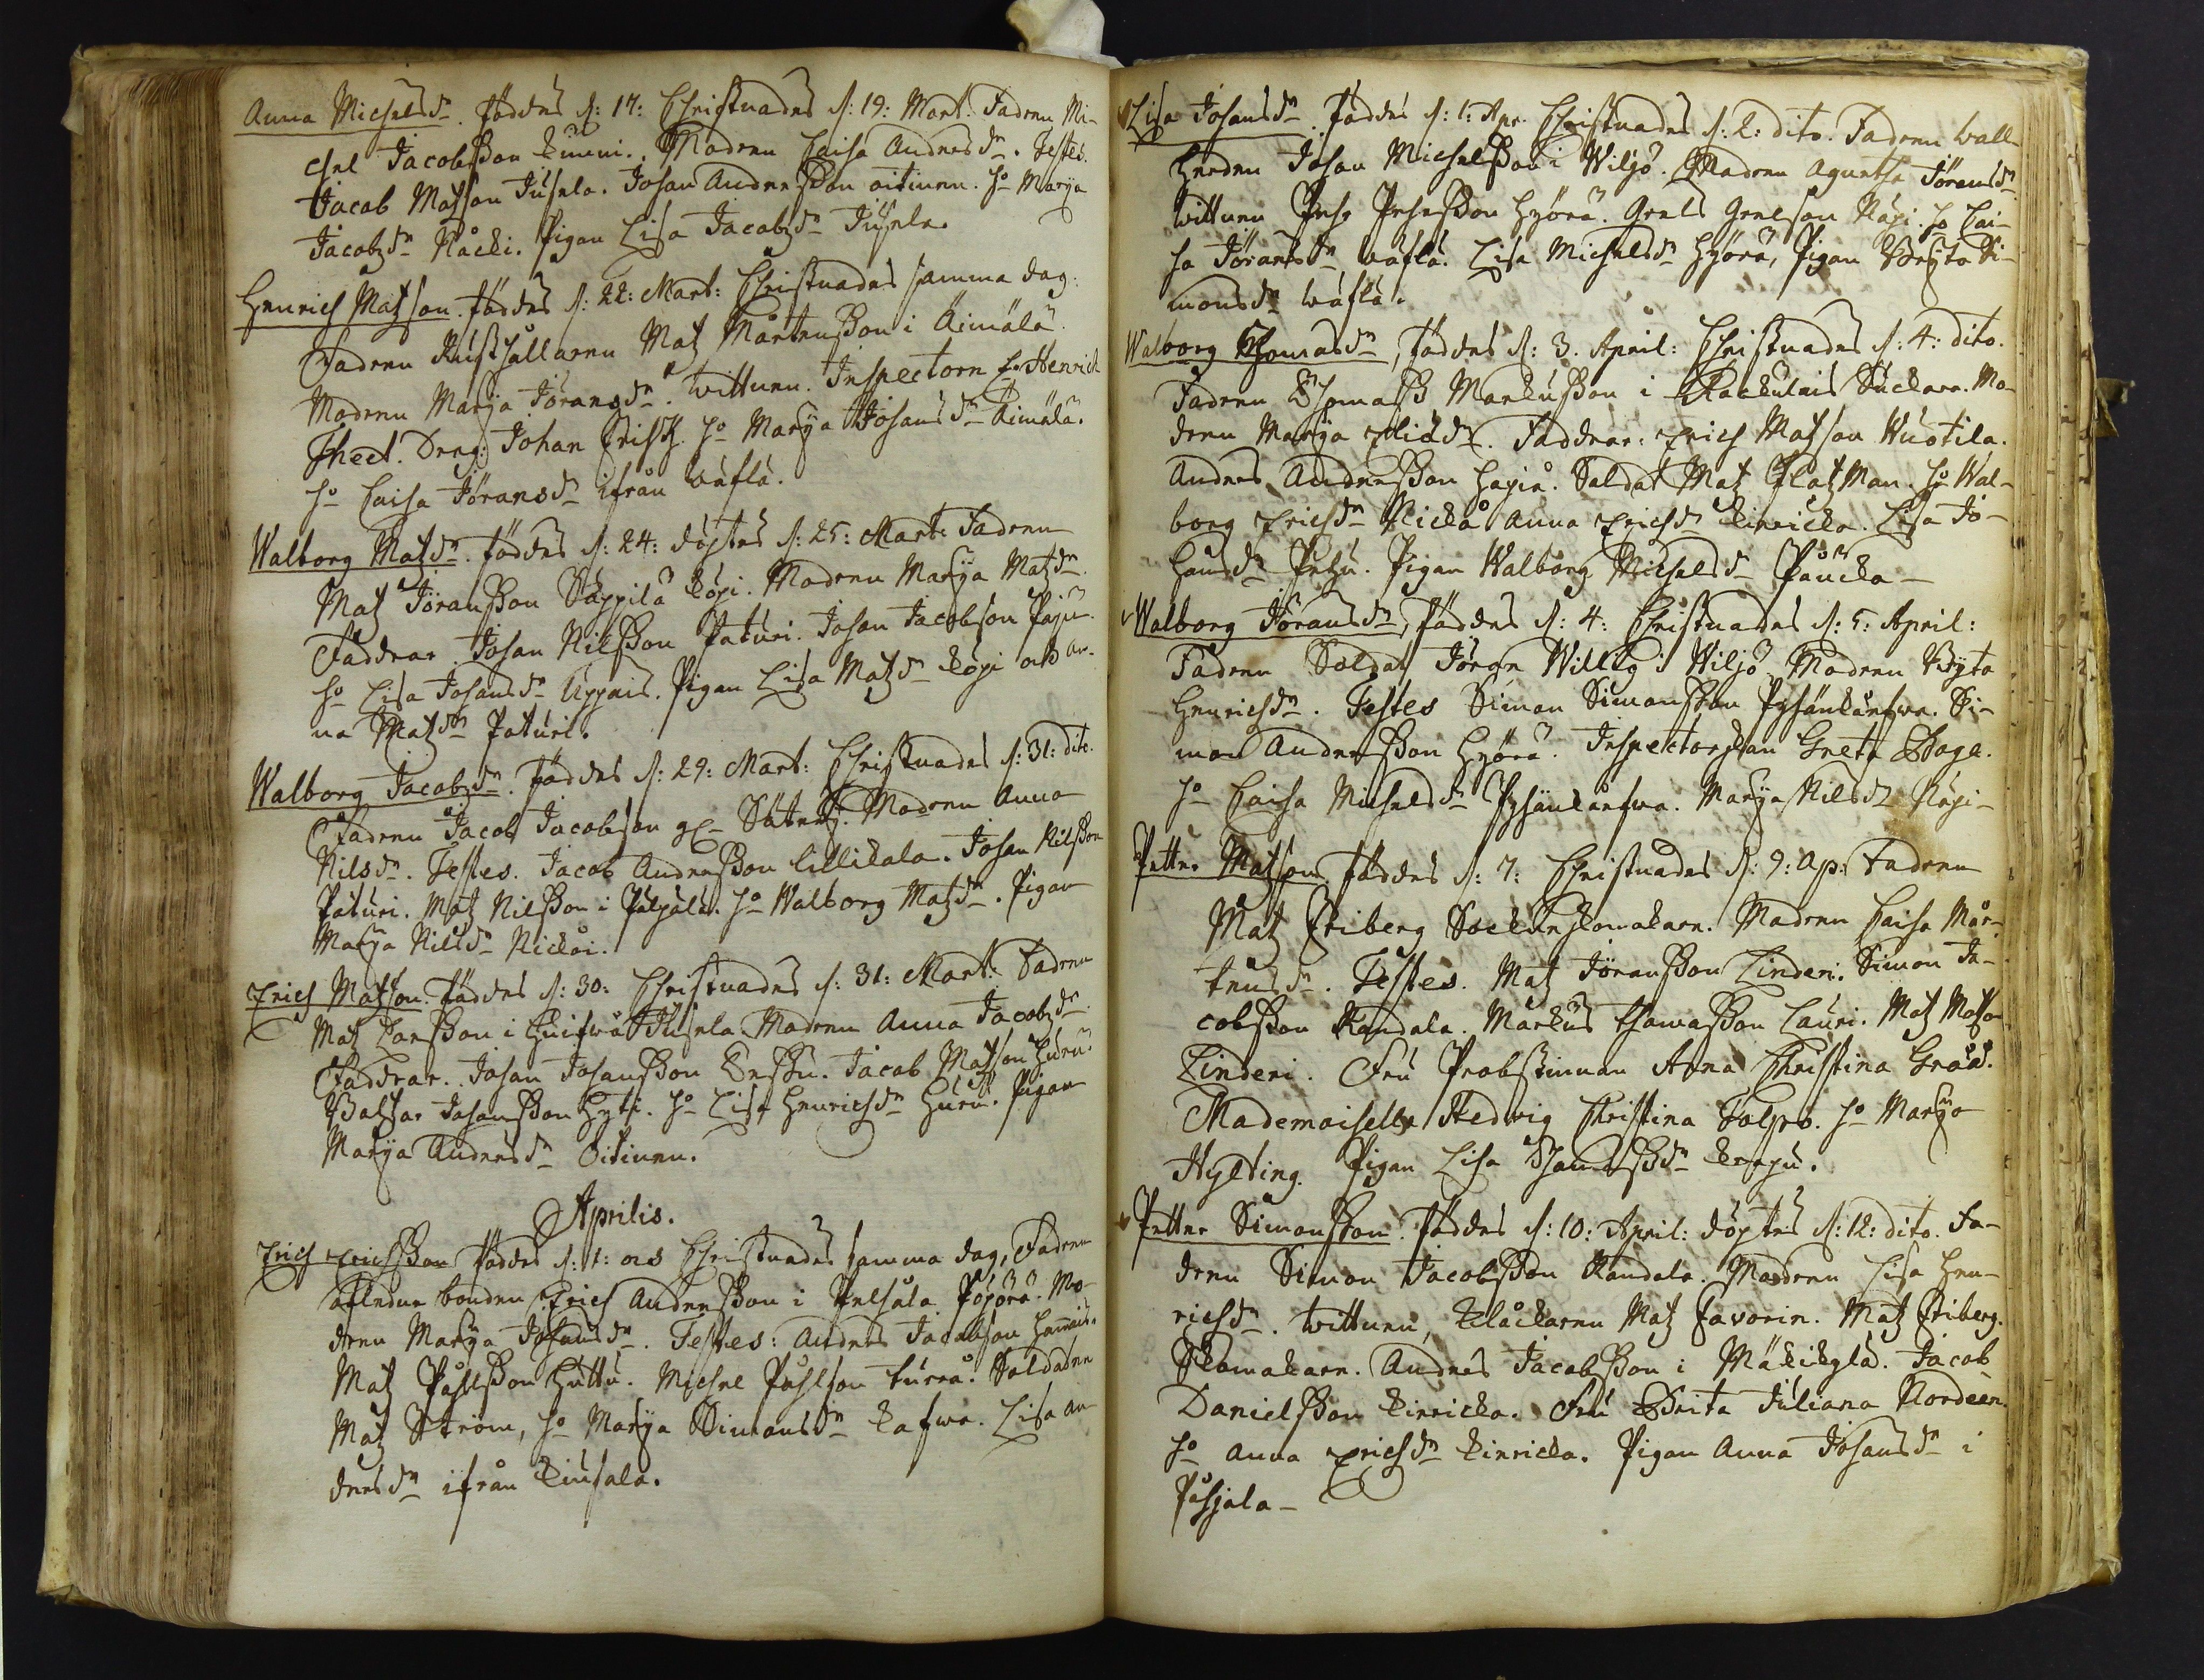 Anna Michelsdr. föddes d: 17: Christnades d: 19: Mart. Fadren Mi-
chel Jacobsson Kunni. Modren Caisa Andersdr. Testes.
Jacob Matsson Jusela. Johan Andersson oitinen. ho Marija
Jacobsdr Näcki. Pigan Lisa Jacobsdr Jusela.
Henrich Matsson. föddes d: 22: Mart: Christnades samma dag.
Fadren Rusthållaren Mats Mårtensson i Äimälä.
Modren Marija Jöransdr. Wittnen. Inspectoren Hr Henrich
Thect. Dreng: Johan Frisk. ho Marija Johansdr Äimälä.
ho Caisa Jöransdr ifrån wäflä.
Walborg Matsdr. föddes d: 24: döptes d: 25: Mart: Fadren
Mats Jöransson Säppilä Köpi. Modren Marija Matsdr.
Faddrar. Johan Nilsson Paturi. Johan Jacobson Paju.
ho Lisa Johansdr Uppais. Pigan Lisa Matsdr Köpi och An-
na Matsdr Paturi.
Walborg Jacobsdr. föddes d: 29: Mart: Christnades d: 31: dito.
Fadren Jacob Jacobson Modren Anna
Nilsdr. Testes. Jacob Andersson Lillikala. Johan Nilsson
Paturi. Mats Nilsson i Pätjälä. ho Walborg Matsdr. Pigan
Marija Nilsdr Nickäi.
Erich Matsson. föddes d: 30: Christnades d: 31: Mart: Fadren
Mats Larsson i Huifwå Jusela. Modren Anna Jacobsdr.
Faddrar. Johan Johansson Eskn. Jacob Matsson Huru.
Baltsar Johansson Hyti. ho Lisa Henrichsdr Huru. Pigan
Marija Andersdr Oitinen.
Aprilis.
Erich Erichsson föddes d: 1: och Christnades samma dag, Fadren
afledne bonden Erich Andersson i Pelsala Pöyörä. Mo-
dren Marija Johansdr. Testes: Anders Jacobson Hannais.
Mats Påhlsson Huttu. Michel Påhlson turra. Soldaten
Mats Ström, ho Marija Simonsdr Kafwa. Lisa An-
dersdr ifrån Kinsala.
Lisa Johansdr. föddes d: 1: Apr. Christnades d: 2: dito. Fadren Wall-
herden Johan Michelsson i Wiljo. Modren Agnetha Jöransdr
Wittnen Pehr Pehrsson Hyörä. Grels Grelsson Näpi. ho Cai-
sa Jöransdr wäflä. Lisa Michelsdr Hyörä, Pigan Bryta Si-
monsdr wäflä.
Walborg Thomasdr, föddes d: 3. April: Christnades d: 4: dito.
Fadren Thomass Markusson i Rackulais Suckare. Mo-
dren Marija Eliædr. Faddrar: Erich Matsson Wuotila.
Anders Andersson Hapia. Soldat Mats Flatman. ho Wal-
borg Erichsdr Nickå Anna Erichsdr Kinricka. Lisa Jo-
hansdr Petju. Pigan Walborg Michelsdr Paucka –
Walborg Jöransdr, föddes d: 4: Christnades d: 5: April:
Fadren Soldat Jören Willig i Wiljo Modren Bryta
Henrichsdr. Testes Simon Simonsson Pyhänkårfwa. Si-
mon Andersson Hyörä. Inspectorskan Greta Boga.
ho Caisa Michelsdr Pyhänkårfwa. Marija Nilsdr Näpi –
Petter Matsson föddes d: 7: Christnades d: 9: Ap: Fadren
Mats Friberg Sockneskomakare. Modren Caisa Mår-
tensdr. Testes. Mats Jöransson Linderi. Simon Ja-
cobsson Kandala. Markus Thomasson Lauri. Mats Matsson
Linderi. Fru Probstinnan Anna Christina Graå.
Mademoiselle Hedvig Christina Polprs. ho Marija
Hylding. Pigan Lisa Thomassdr Karpu.
Petter Simonsson. föddes d: 10: April: döptes d: 12: dito. Fa-
dren Simon Jacobsson Kandala. Modren Lisa Hen-
richsdr. Wittnen, Klåckaren Mats Favorin. Mats Friberg.
Skomakare. Anders Jacobsson i Mäkikylä. Jacob
Danielsson Kinricka. Fru Brita Juliana Nordeen.
ho Anna Erichsdr Kinricka. Pigan Anna Johansdr i
Påhjala –